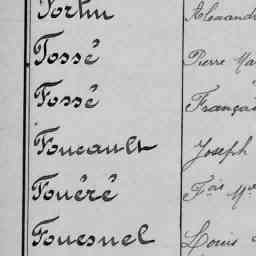 Fortin Alexandr
Fossé Pierre Ma
Fossé Françai
Foucault Joseph
Fouéré Fois Me
Fouesnel Louis